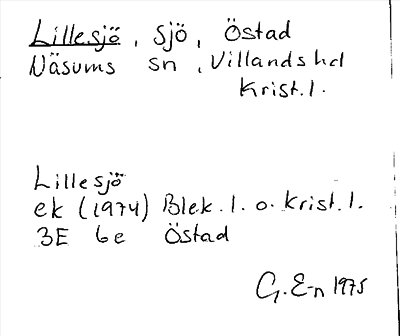 Lillesjö, sjö, Östad
Näsums sn, Villands hd
Krist. l.
Lillesjö
ek (1974) Blek. l. o. Krist. l.
3E 6e Östad
G. E-n 1975